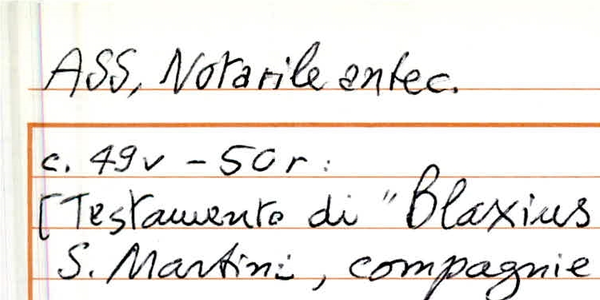 ASS, Notarile antec.
c. 49v - 50r:
[Testamento di "Blaxius
S. Martini, compagnie